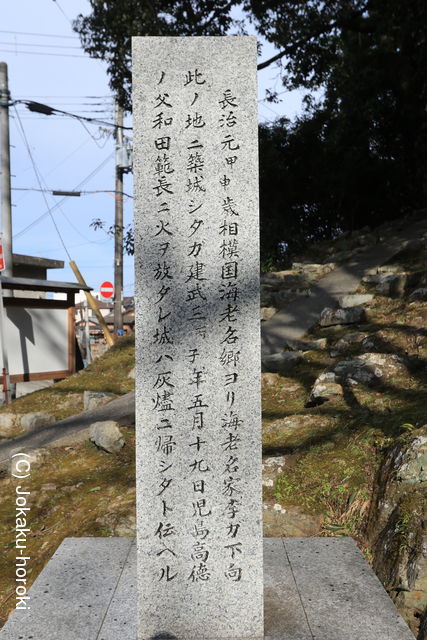 長治元甲申歳相模国海老名郷ヨリ海老名家季カ下向
此ノ地ニ築城シタガ建武三丙子年五月十九日児島高徳
ノ父和田範長ニ火ヲ放タレ城ハ灰燼ニ帰シタト伝ヘル
(C) Jokaku-horoki